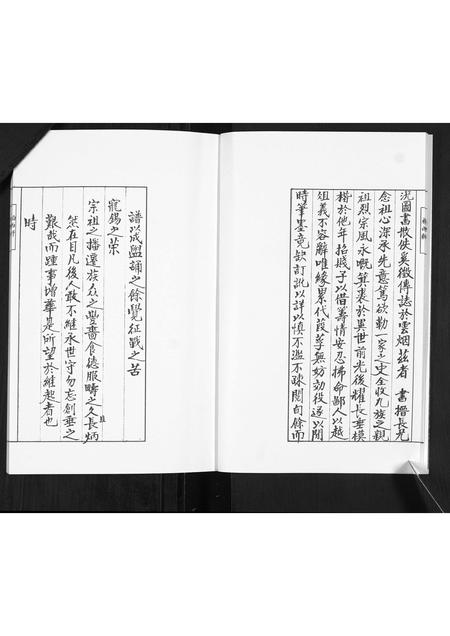 况國書散佚奚徵傳誌於雲烟茲者 書搢長兄
念祖心深承先意篤欲勒一家之史全收九族之親
祖烈宗風永嘅箕裘於異世前光後耀長垂模
楷於他年招殿子以借籌情安忍拂命鄙人以越
俎義不容辭唯緣累代葭莩無妨効役遂以閒
時筆墨竟缺訂訛以詳以慎不濫不疎閱旬餘而
譜以成盥誦之餘覺征戰之苦
寵錫之榮
宗祖之播遷族众之豐嗇食德服疇之久長炳
然在目凡後人敢不継承世守勿忘創垂之
艱哉而踵事增華是所望於継起者也
時